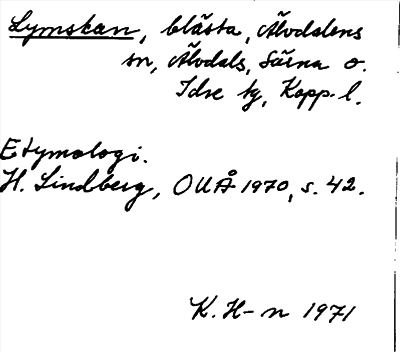 Lymskan, blåsta, Älvdalens
sn, Älvdals, Särna o.
Idre tg, Kopp. l.
Etymologi.
H. Lindberg, OUÅ 1970, s. 42.
K. H-n 1971